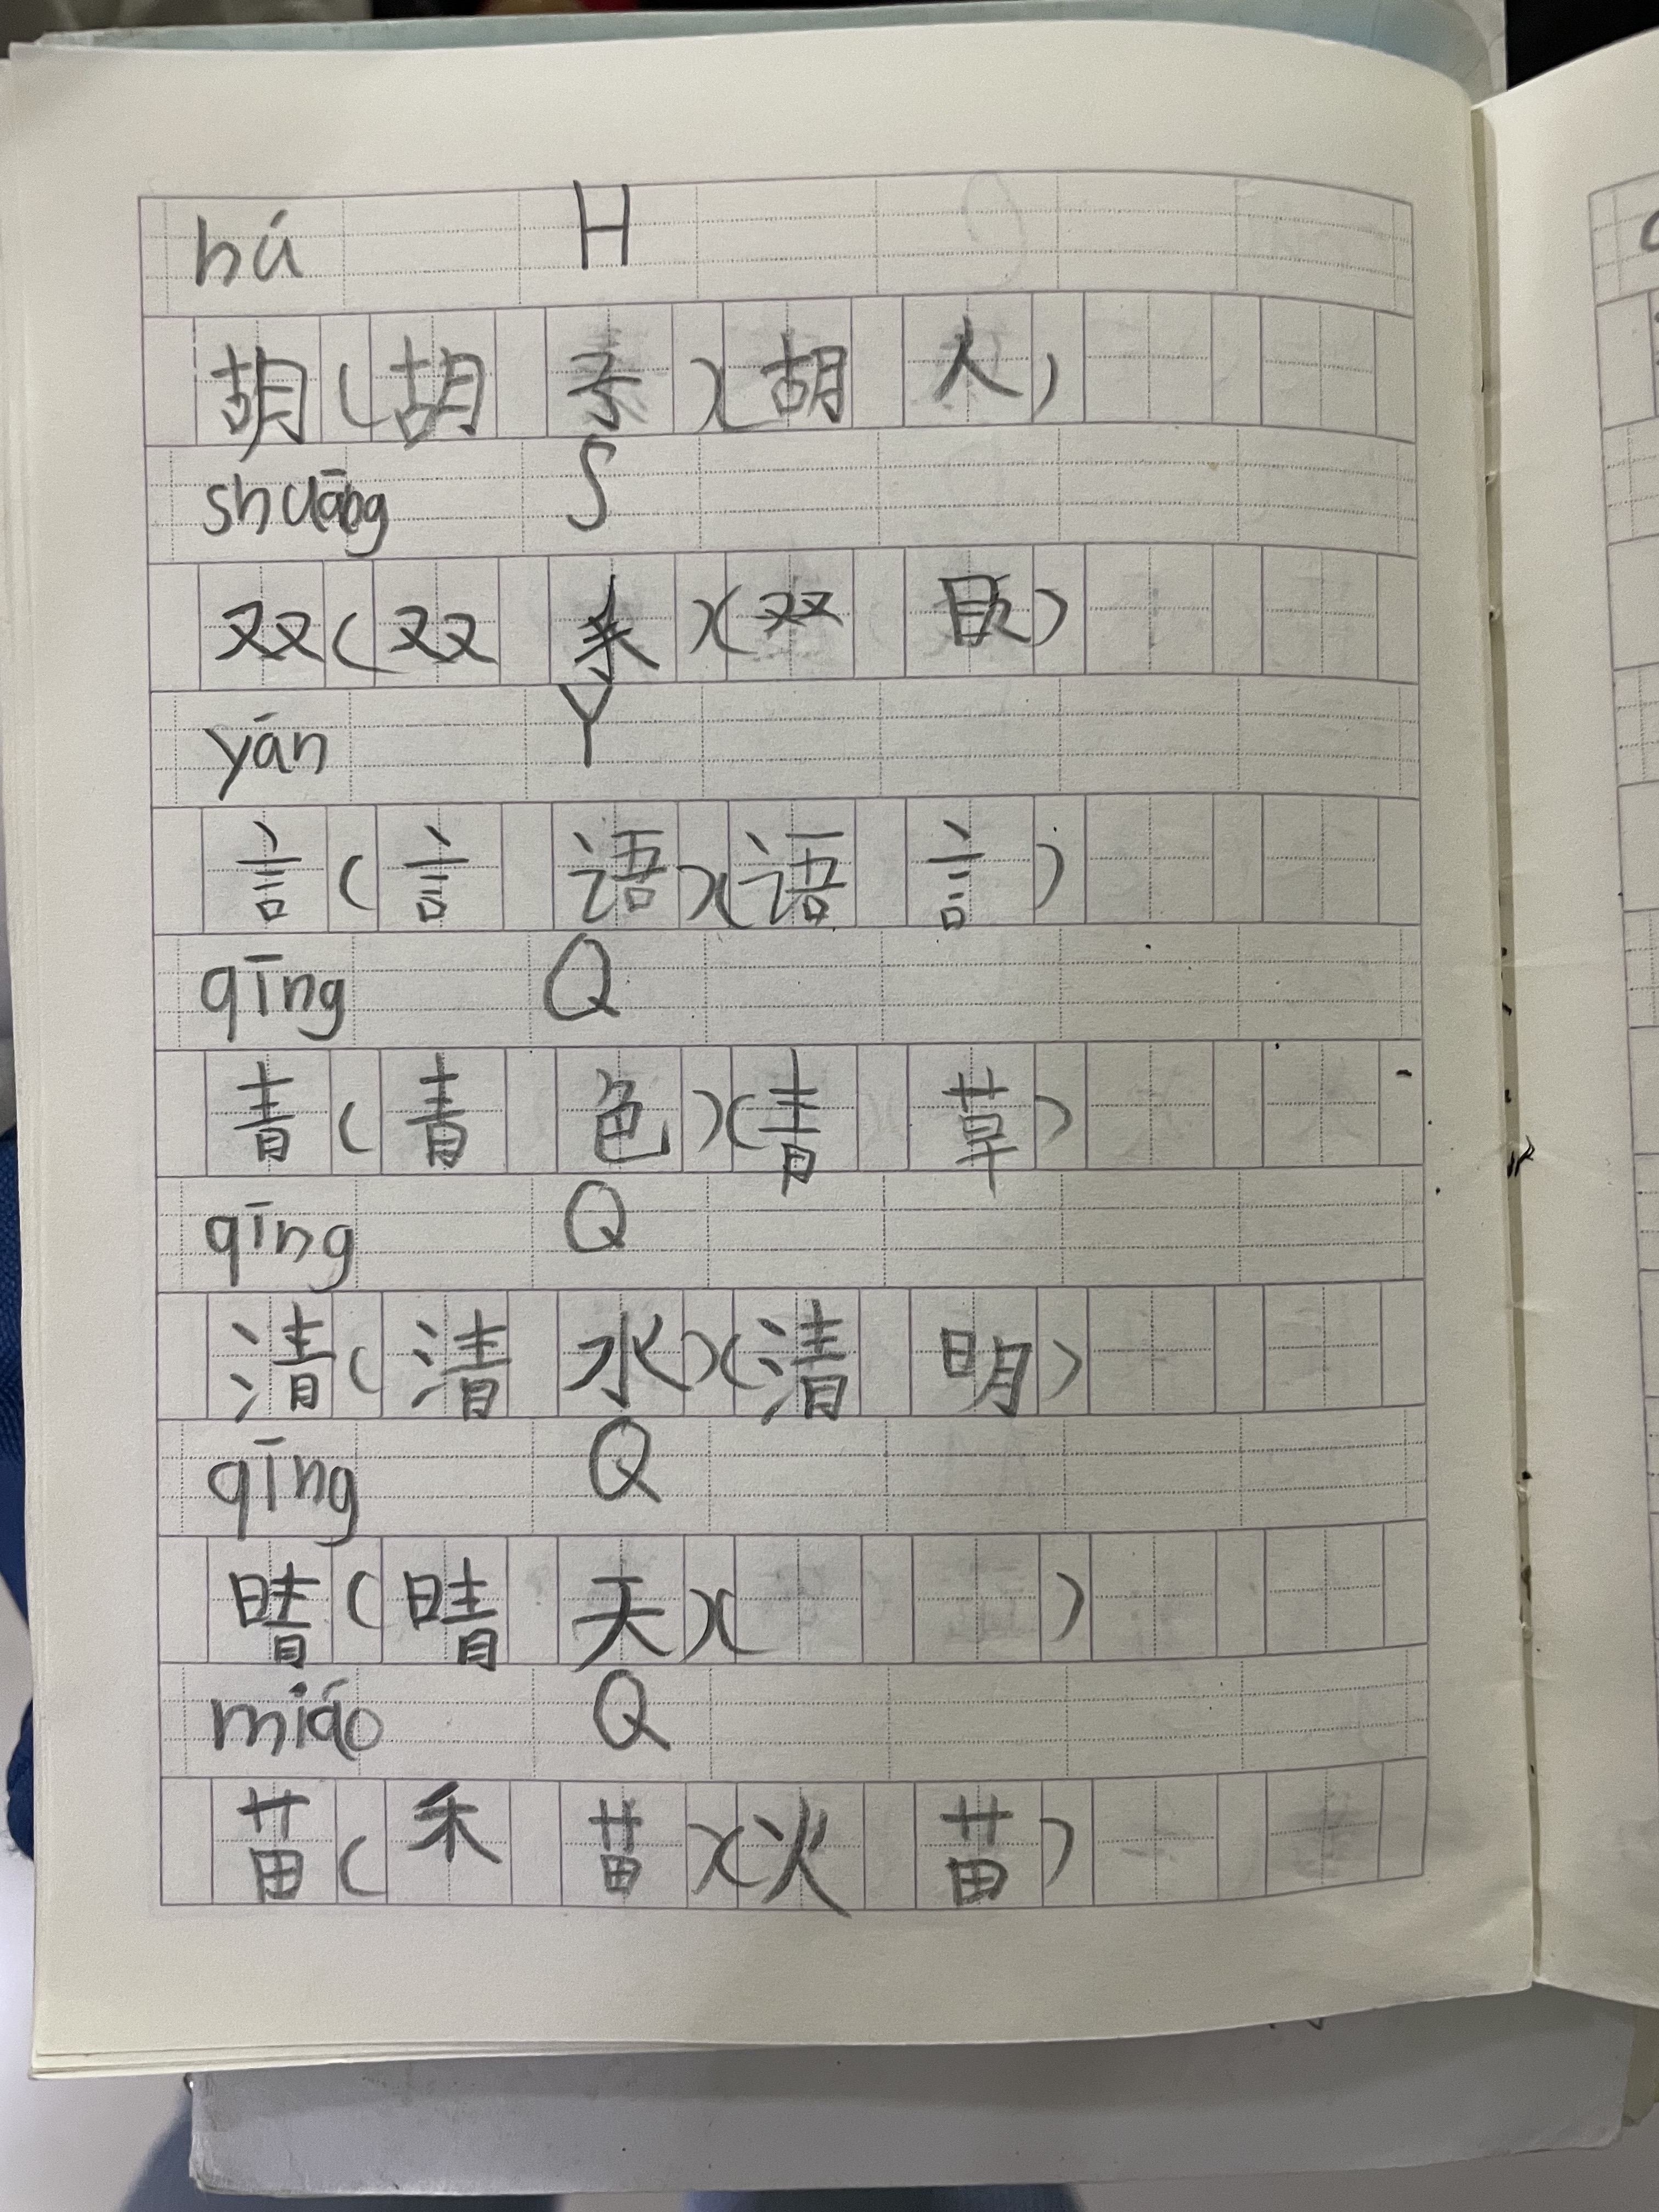 hú H
胡(胡子)(胡人)
shuāng S
双(双亲)(双眼)
yán Y
言(言语)(语言)
qīng Q
青(青色)(青草)
qīng Q
清(清水)(清明)
qīng Q
晴(晴天)( )
miáo Q
苗(禾苗)(火苗)